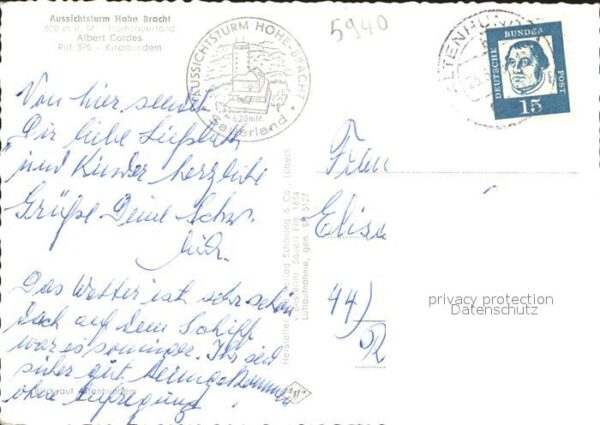 Aussichtsturm Hohe Bracht
620 m ü. M. Hochsauerland
Albert Cordes
Ruf 395 - Kirchhundem
AUSSICHTSTURM HOHE-BRACHT
620mtr.
Sauerland
5940
ALTENHUNDEM
DEUTSCHE BUNDESPOST
15
Von hier sendet
Dir liebe
und Kinder herzliche
Grüße Deine Schw.
Das Wetter ist sehr schön
doch auf dem Schiff
war es sonniger. Ihr seid
sicher gut heimgekommen
ohne Aufregung
Frau
Elise
44)
privacy protection
Datenschutz
Hersteller Verlag Schöning & Co., Lübeck
Luftaufnahme, gen. SH 5127